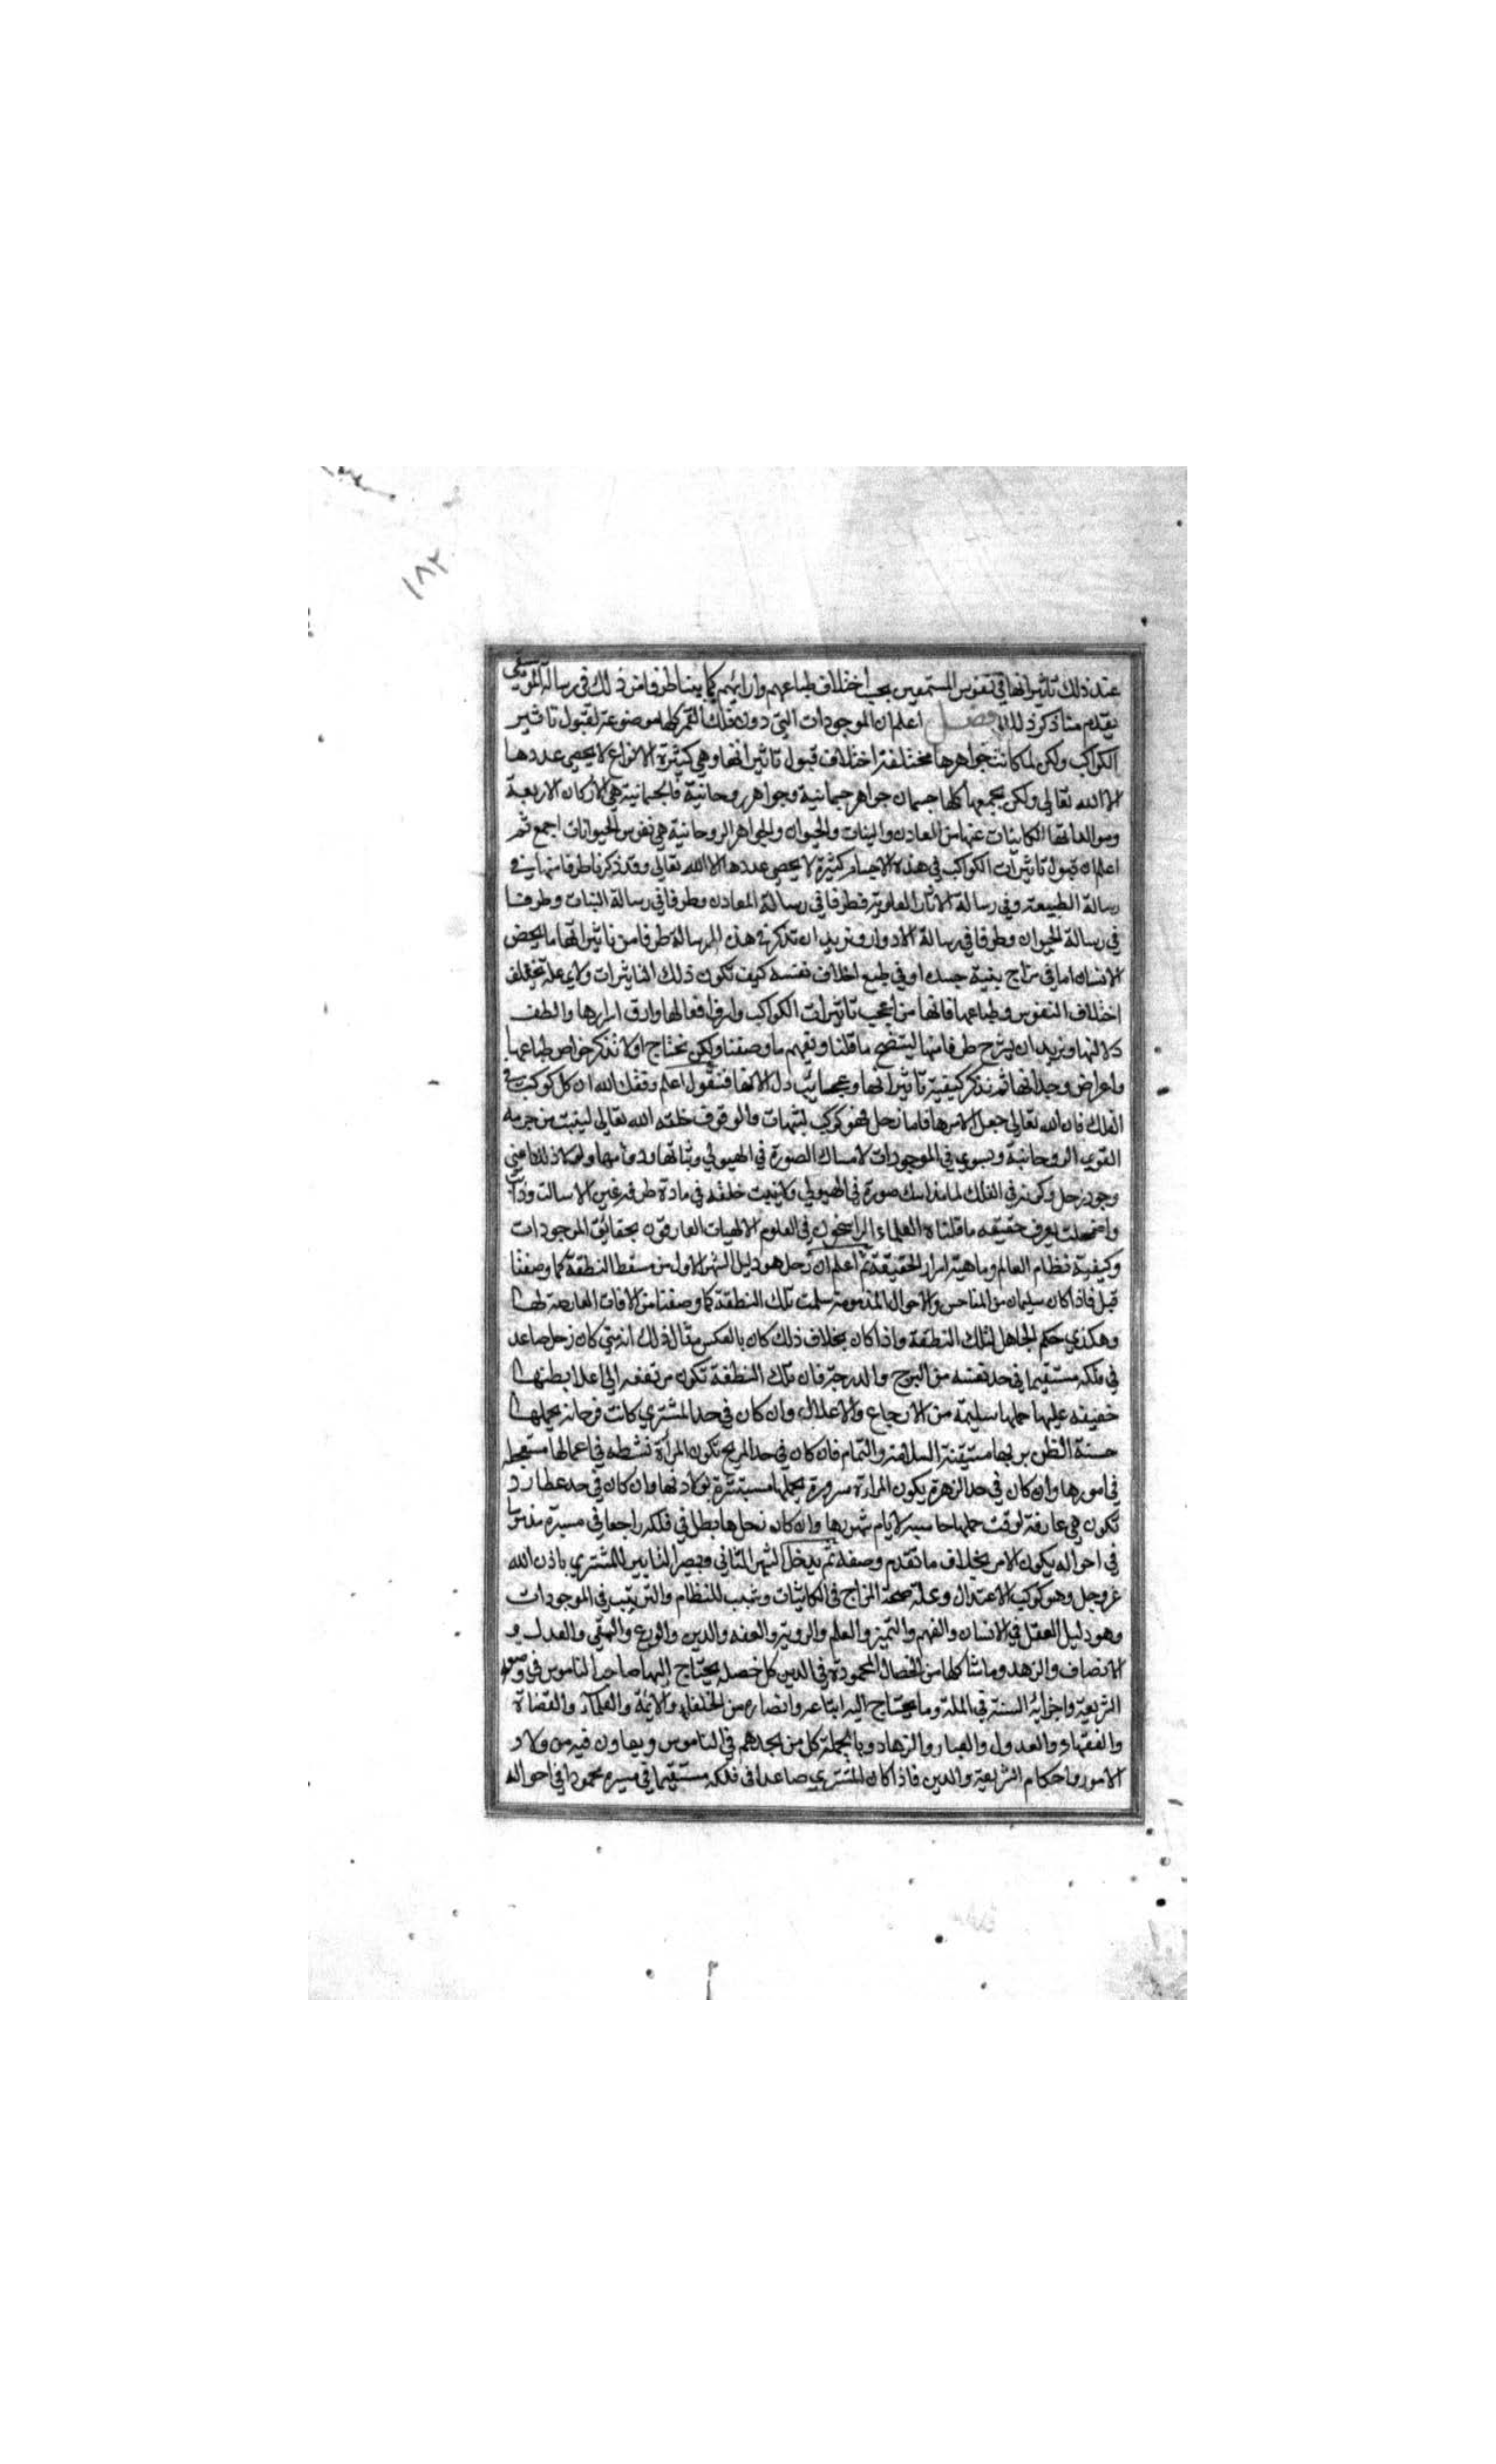 ١٨٢
عند ذلك تاثيراتها في نفوس المستمعين بحسب اختلاف طباعهم وارائهم كما بينا طرفا من ذلك في رسالة الموسيقى
يقدم منا ذكر ذلك فصل اعلم ان الموجودات التي دون فلك القمر كلها موضوعة لقبول تاثير
الكواكب ولكن لما كانت جواهرها مختلفة اختلاف قبول تاثيراتها وهي كثيرة الانواع لا يحصى عددها
الا الله تعالى ولكن يجمعها كلها جسمان جواهر جسمانية وجواهر روحانية فالجسمانية هي الاركان الاربعة
ومولداتها الكاينات عنها من المعادن والنبات والحيوان والجواهر الروحانية هي نفوس الحيوانات اجمع ثم
اعلم ان قبول تاثيرات الكواكب في هذه الاجسام كثيرة لا يحصى عددها الا الله تعالى وقد ذكرنا طرفا منها في
رسالة الطبيعة وفي رسالة الاثار العلوية وطرفا في رسالة المعادن وطرفا في رسالة النبات وطرفا
في رسالة الحيوان وطرفا في رسالة الادوار ونريد ان نذكر في هذه الرسالة طرفا من تاثيراتها ما يخص
الانسان اما في مزاج بنية جسده او في طبع اخلاق نفسه كيف تكون ذلك التاثيرات ولاي علة تختلف
اختلاف النفوس وطباعها فانها من اعجب تاثيرات الكواكب واظرف افعالها وادق اسرارها والطف
دلالتها ونريد ان يشرح طرفا منها ليتضح ما قلنا ويفهم ما وصفنا ولكن نحتاج اولا نذكر خواص طباعها
واعراض وجداتها ثم نذكر كيفية تاثيراتها وعجايب دلالاتها فنقول اعلم وفقك الله ان كل كوكب في
الفلك فان الله تعالى جعل لامرها فاما زحل فهو كوكب الثبات والوقوف خلقه الله تعالى لينبث من جرمه
القوى الروحانية ويسري في الموجودات لامساك الصورة في الهيولي وثباتها ودوامها ولولا ذلك اعني
وجود زحل وكونه في الفلك لما تماسك صورة في الهيولي ولا ثبت خلقه في مادة طرفة عين الا سالت وذابت
واضمحلت يعرف حقيقه ما قلناه العلماء الراسخون في العلوم الالهيات العارفون بحقائق الموجودات
وكيفية نظام العالم وماهية اسرار الحقيقة ثم اعلم ان زحل هو دليل الشهر الاول من مسقط النطفة كما وصفنا
قبل فاذا كان سليمان من المناحس والاحوال المذمومة سلمت تلك النطفة كما وصفنا من الافات العارضة لها
وهكذي حكم الحاهل لتلك النطفة واذا كان بخلاف ذلك كان بالعكس مثال ذلك انه متى كان زحل صاعد
في فلكه مستقيما في حد نفسه من البرج والدرجة فان تلك النطفة تكون مرتفعه الى اعلا بطنها
خفيفه عليها حملها سليمة من الاوجاع والاعلال وان كان في حد المشتري كانت فرحانه بحملها
حسنة الظن بربها مستيقنة السلامة والتمام فان كان في حد المريخ تكون المرأة نشطه في اعمالها مستعجله
في امورها وان كان في حد الزهرة يكون المراة مسرورة بحملها مستبشرة بولادتها وان كان في حد عطارد
تكون هي عارفة لوقت حملها حاسبه لايام شهرها وان كان زحل هابطا في فلكه راجعا في مسيرة
في احواله يكون الامر بخلاف ما تقدم وصفه ثم يدخل الشهر الثاني ويصير التدبير للمشتري باذن الله
عز وجل وهو كوكب الاعتدال وعلة صحة المزاج في الكائنات وسبب للنظام والترتيب في الموجودات
وهو دليل العقل في الانسان والفهم والتميز والعلم والروية والعفه والدين والورع والتقى والعدل و
الانصاف والزهد وما شاكلها من الخصال المحمودة في الدين كل خصله يحتاج اليها صاحب الناموس في وضعه
الشريعة واجرائه السنة في الملة وما يحتاج اليه اتباعه وانصاره من الخلفاء والائمة والعلماء والقضاة
والفقهاء والعدول والعباد والزهاد وبالجملة كل من يجدهم في الناموس ويعاون فيه من ولاة
الامور واحكام الشريعة والدين فاذا كان المشتري صاعدا في فلكه مستقيما في مسيره محمودا في احواله